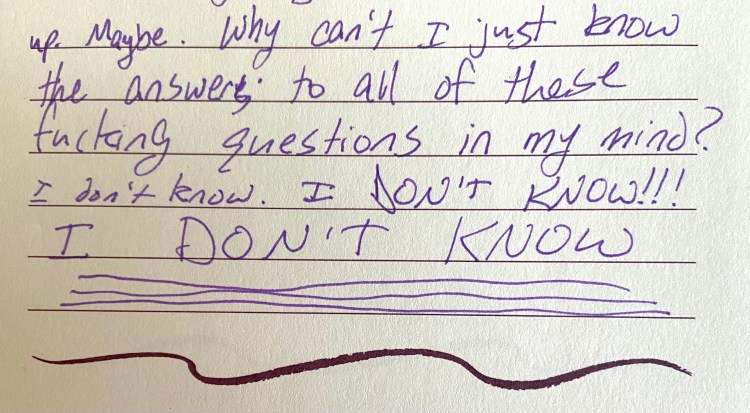 up. Maybe. Why can't I just know
the answers to all of these
fucking questions in my mind?
I don't know. I DON'T KNOW!!!
I DON'T KNOW